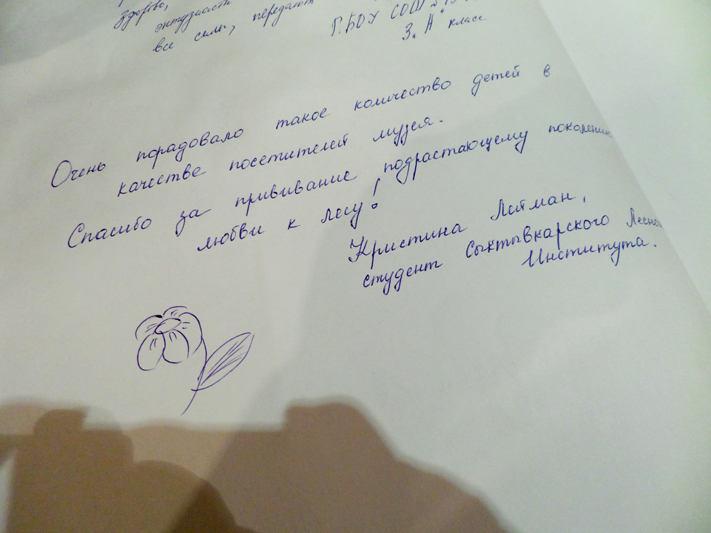 здорово,
энтузиасты
все силы, передают
3 "А" класс
Очень порадовало такое количество детей в
качестве посетителей музея.
Спасибо за прививание подрастающему поколению
любви к лесу!
Кристина
студент Сыктывкарского Лесного
Института.